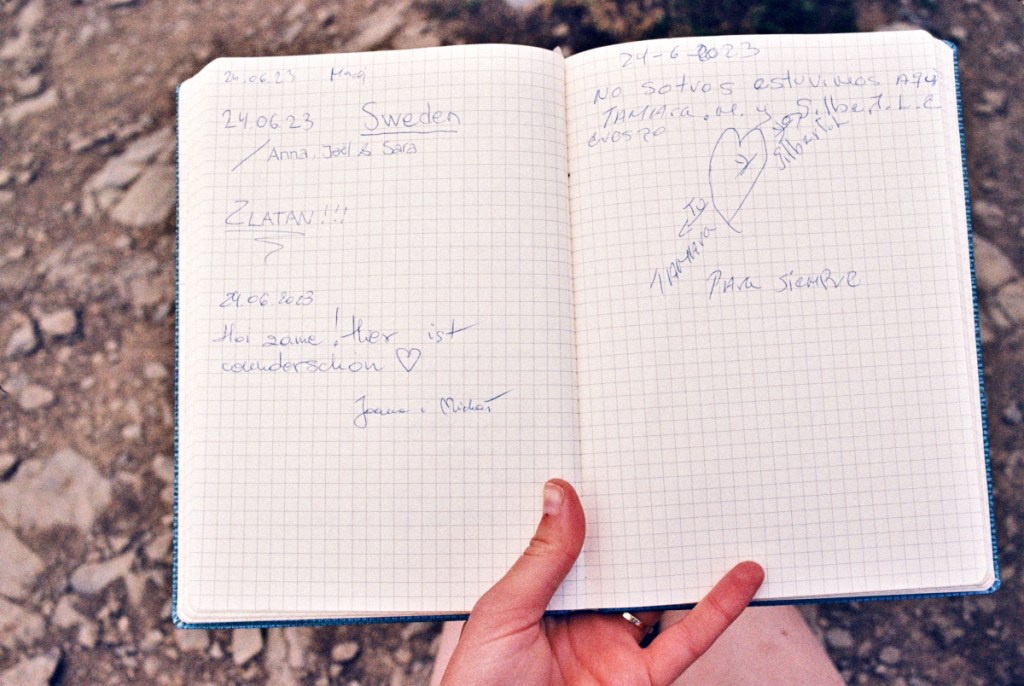 24.06.23
24.06.23 Sweden
Anna, Joel & Sara
ZLATAN!!!
24.06.2023
Hoi zame! Hier ist
wunderschön ♡
Joana & Michał
24-6-2023
No sotros estuvimos AQuí
TAMARA. M. y Silbert. L. C
Tu
TAMARA
Yo
Silbert
PARA SIEMPRE